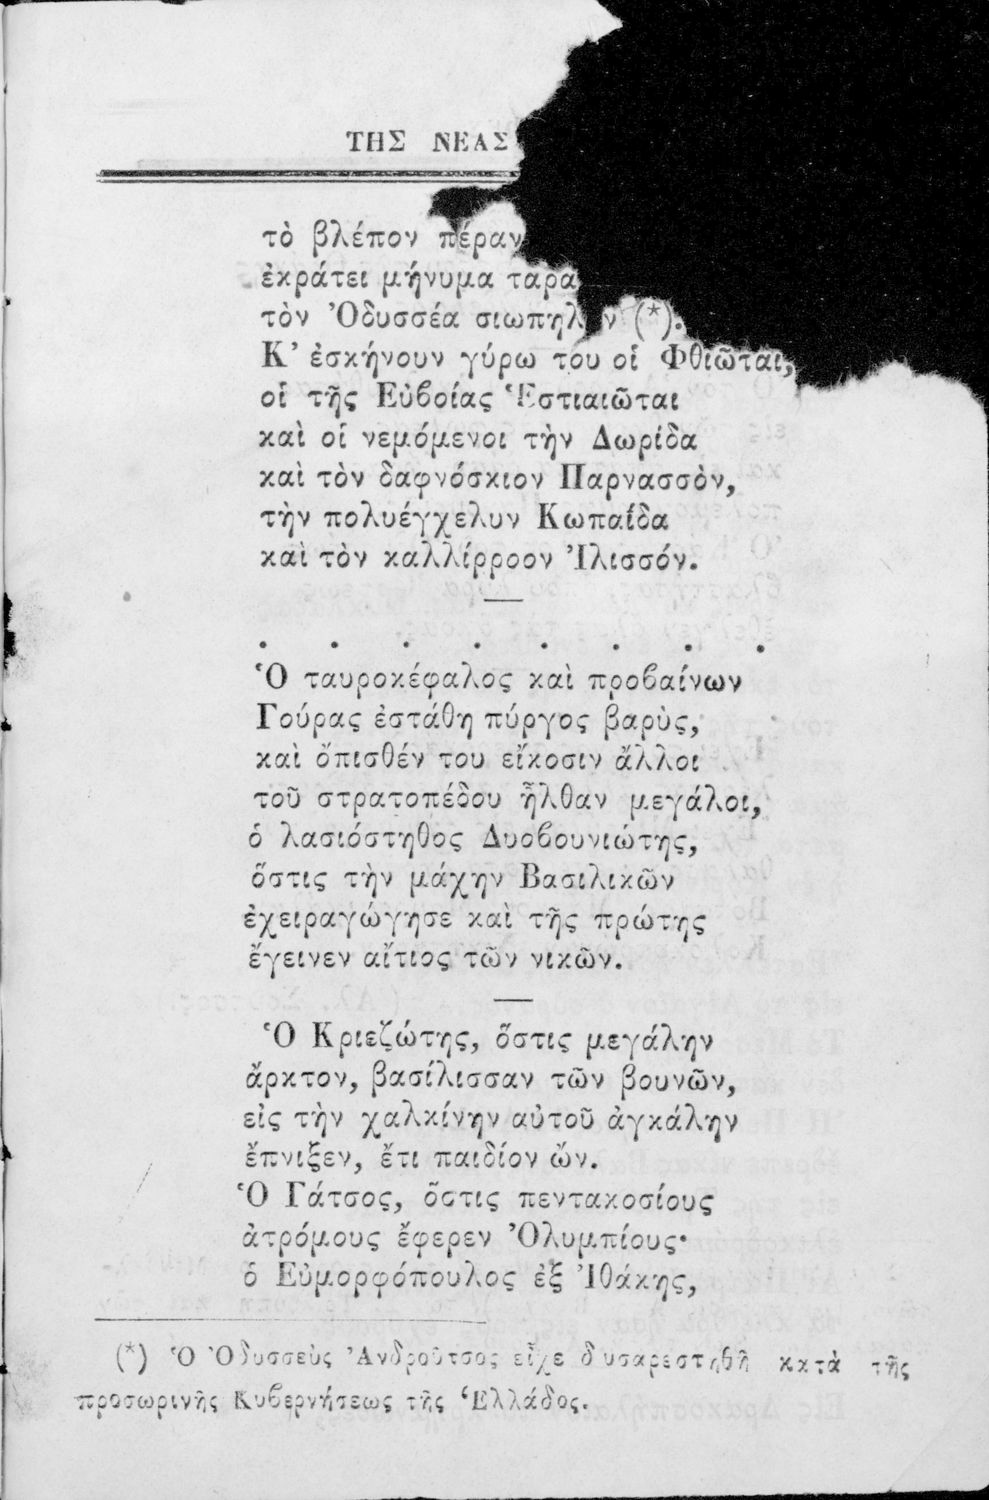 ΤΗΣ ΝΕΑΣ
τὸ βλέπον πέραν
ἐκράτει μήνυμα ταρα
τὸν Ὀδυσσέα σιωπηλὸν (*).
Κ’ ἐσκήνουν γύρω του οἱ Φθιῶται,
οἱ τῆς Εὐβοίας Ἑστιαιῶται
καὶ οἱ νεμόμενοι τὴν Δωρίδα
καὶ τὸν δαφνόσκιον Παρνασσὸν,
τὴν πολυέγχελυν Κωπαΐδα
καὶ τὸν καλλίρροον Ἰλισσόν.
. . . . . . . .
Ὁ ταυροκέφαλος καὶ προβαίνων
Γούρας ἐστάθη πύργος βαρὺς,
καὶ ὄπισθέν του εἴκοσιν ἄλλοι
τοῦ στρατοπέδου ἦλθαν μεγάλοι,
ὁ λασιόστηθος Δυοβουνιώτης,
ὅστις τὴν μάχην Βασιλικῶν
ἐχειραγώγησε καὶ τῆς πρώτης
ἔγεινεν αἴτιος τῶν νικῶν.
Ὁ Κριεζώτης, ὅστις μεγάλην
ἄρκτον, βασίλισσαν τῶν βουνῶν,
εἰς τὴν χαλκίνην αὐτοῦ ἀγκάλην
ἔπνιξεν, ἔτι παιδίον ὤν.
Ὁ Γάτσος, ὅστις πεντακοσίους
ἀτρόμους ἔφερεν Ὀλυμπίους·
ὁ Εὐμορφόπουλος ἐξ Ἰθάκης,
(*) Ὁ Ὀδυσσεὺς Ἀνδροῦτσος εἶχε δυσαρεστηθῆ κατὰ τῆς
προσωρινῆς Κυβερνήσεως τῆς Ἑλλάδος.